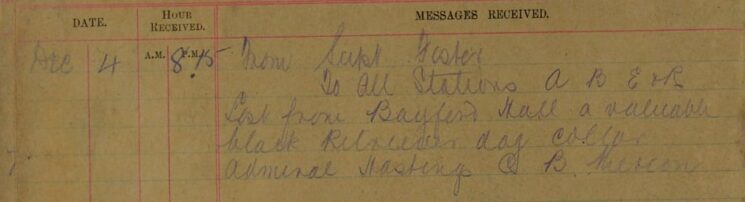 DATE. HOUR RECEIVED. MESSAGES RECEIVED.
A.M. P.M.
Dec 4 8.15 From Supt Foster
To All Stations A B E & R
Lost from Bayford Hall a valuable
black Retriever dog collar
Admiral Hastings C B